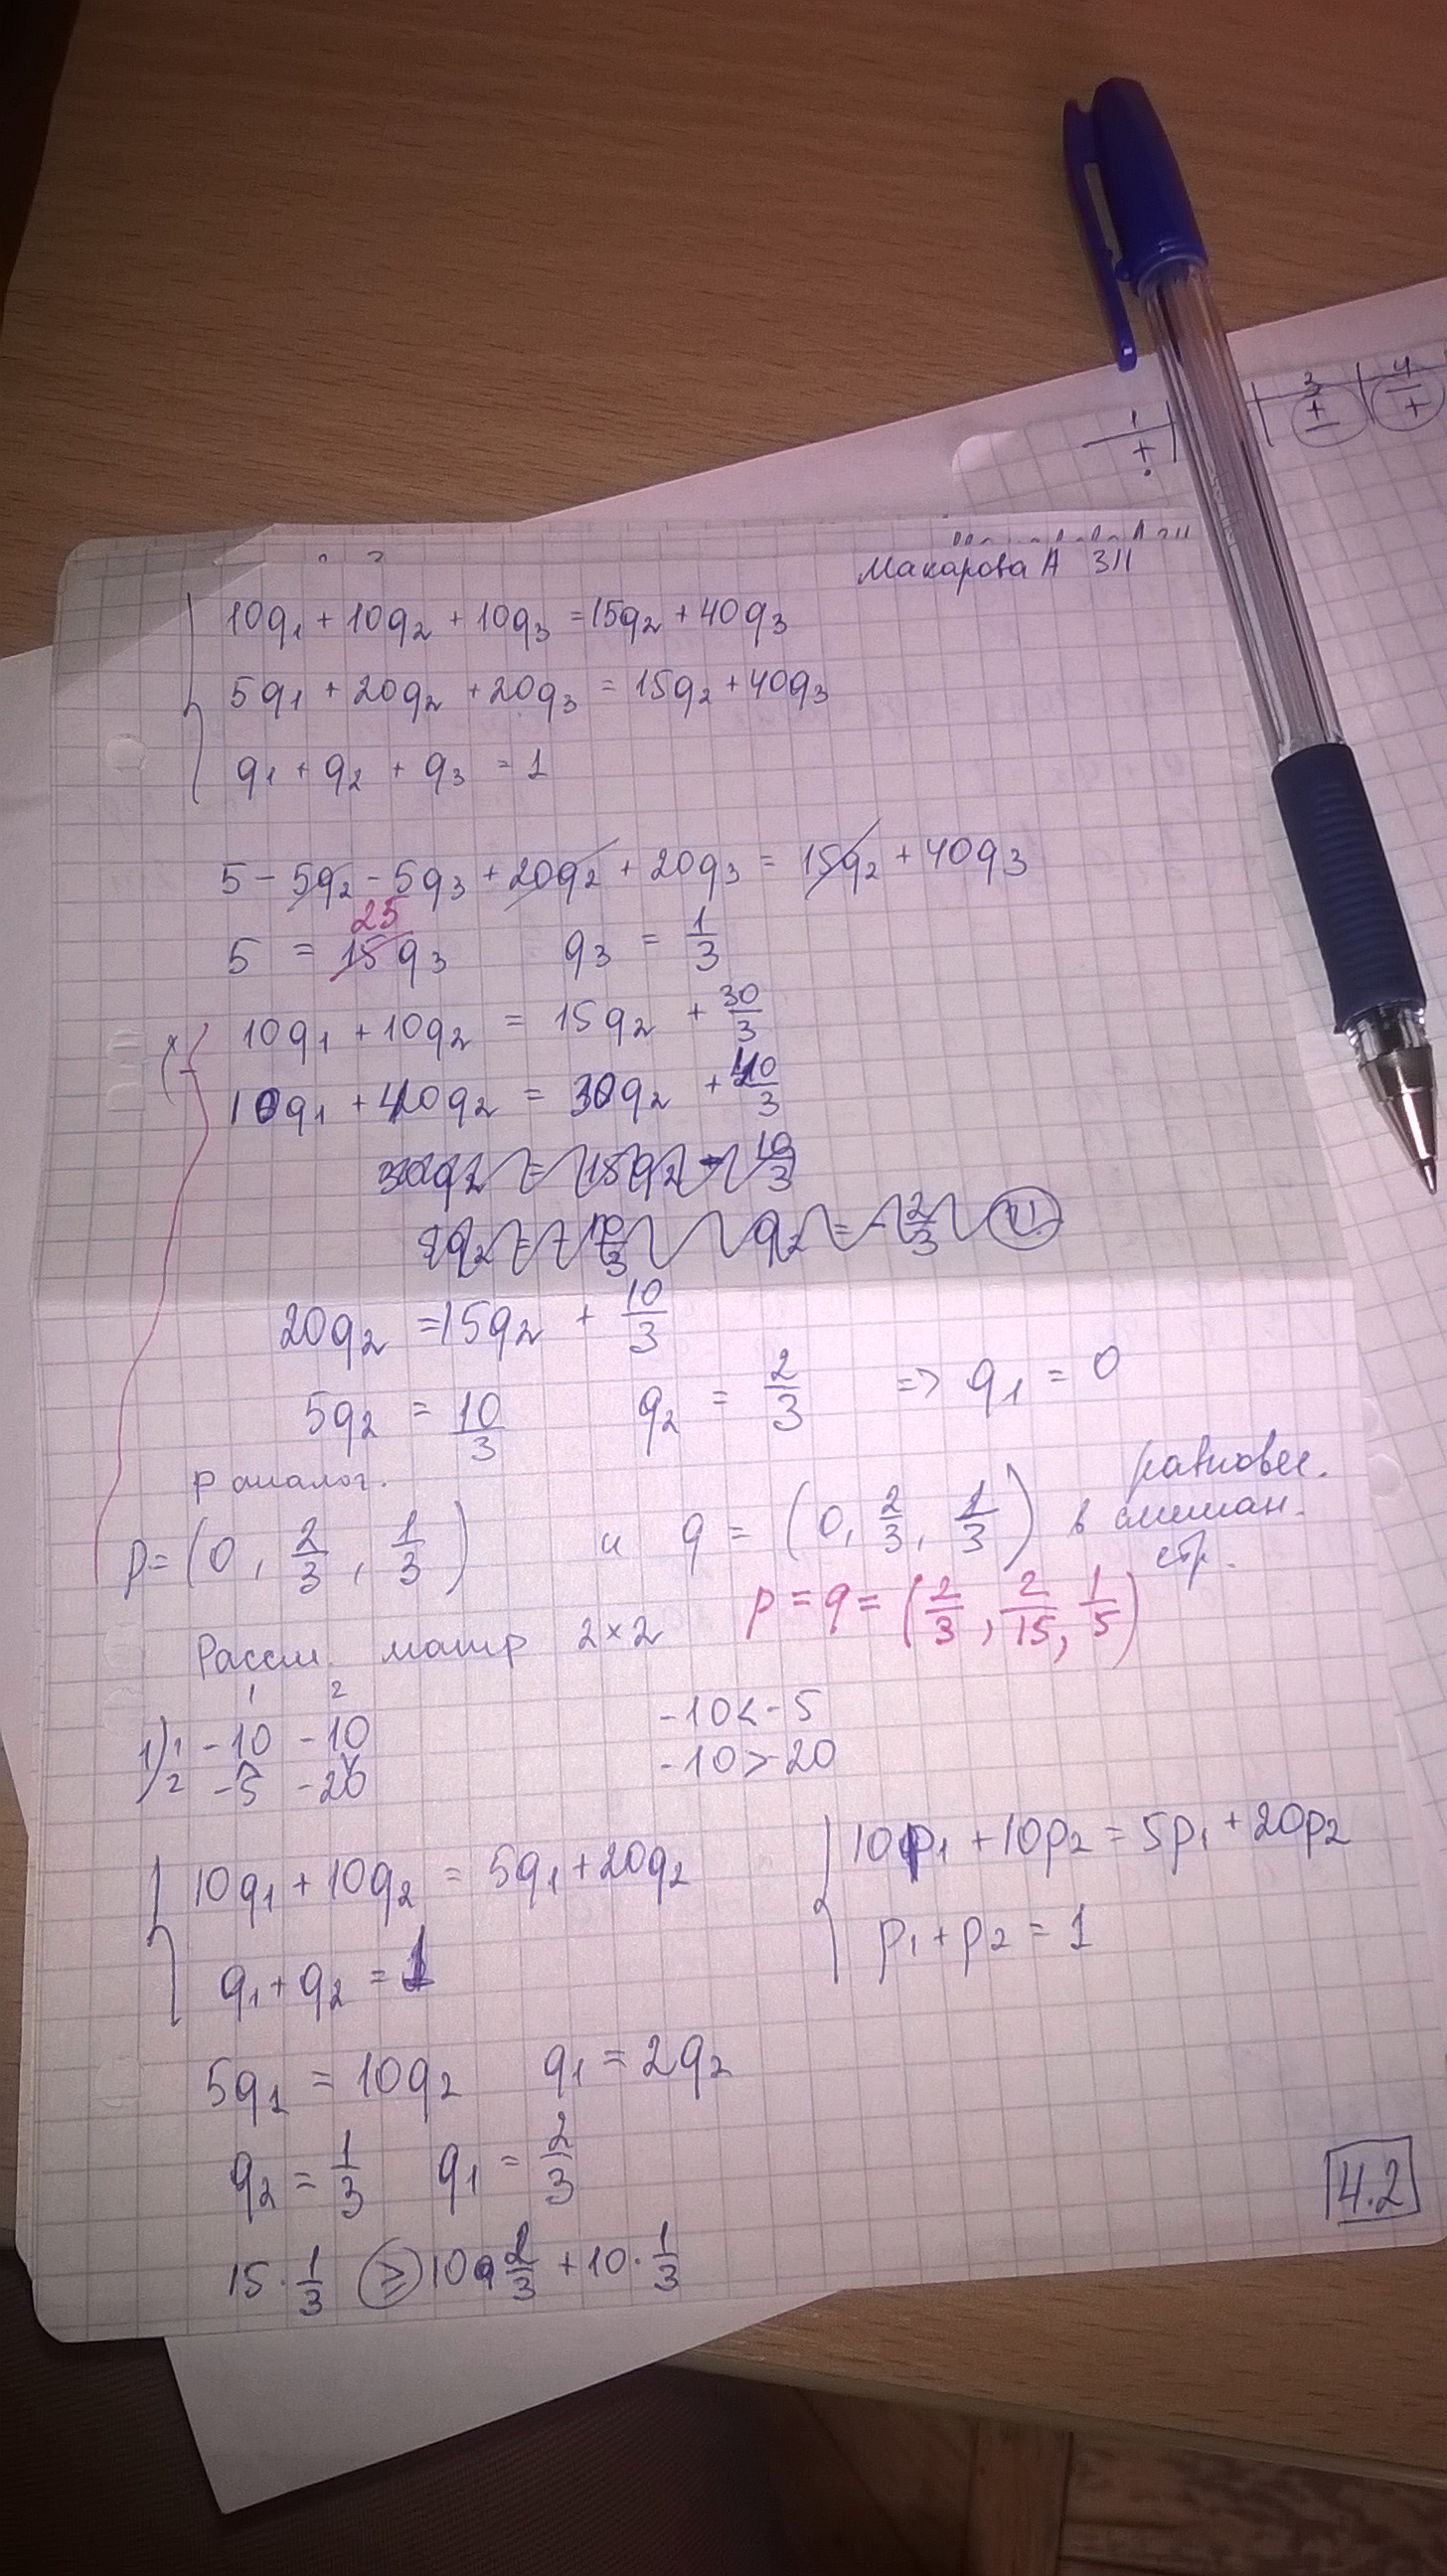 1 3 4
+ ± −+
Макарова А 311
10q₁ + 10q₂ + 10q₃ = 15q₂ + 40q₃
5q₁ + 20q₂ + 20q₃ = 15q₂ + 40q₃
q₁ + q₂ + q₃ = 1
5 − 5q₂ − 5q₃ + 20q₂ + 20q₃ = 15q₂ + 40q₃
25
5 = 15q₃ q₃ = 1/3
10q₁ + 10q₂ = 15q₂ + 30/3
10q₁ + 40q₂ = 30q₂ + 40/3
20q₂ = 15q₂ + 10/3
5q₂ = 10/3 q₂ = 2/3 => q₁ = 0
p аналог.
p = (0, 2/3, 1/3) и q = (0, 2/3, 1/3) равновес. в смешан. стр.
p = q = (2/3, 2/15, 1/5)
Рассм. матр 2×2
1 2
1) 1 −10 −10 −10 < −5
2 −5 −20 −10 > −20
10q₁ + 10q₂ = 5q₁ + 20q₂ 10p₁ + 10p₂ = 5p₁ + 20p₂
q₁ + q₂ = 1 p₁ + p₂ = 1
5q₁ = 10q₂ q₁ = 2q₂
q₂ = 1/3 q₁ = 2/3
4.2
15 · 1/3 ≥ 10 · 2/3 + 10 · 1/3